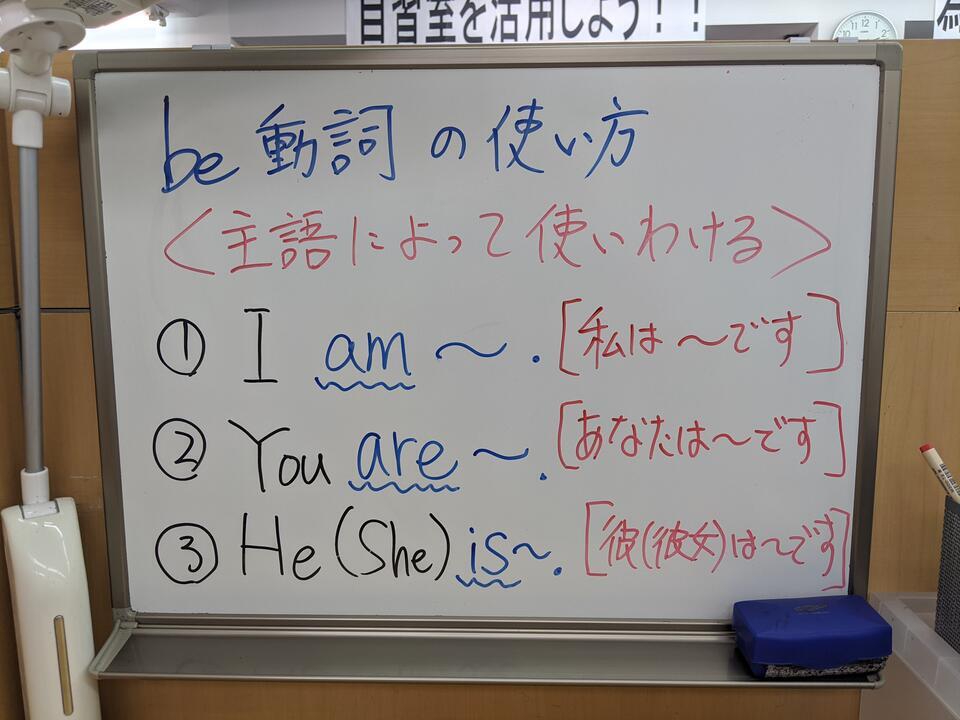 自習室を活用しよう!!
be動詞の使い方
<主語によって使いわける>
① I am ~. [私は~です]
② You are ~. [あなたは~です]
③ He (She) is~. [彼(彼女)は~です]